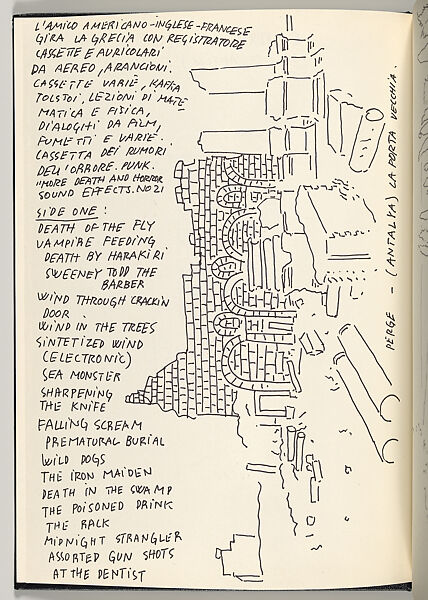 L'AMICO AMERICANO-INGLESE-FRANCESE
GIRA LA GRECIA CON REGISTRATORE
CASSETTE E AURICOLARI
DA AEREO, ARANCIONI.
CASSETTE VARIE, KAFKA
TOLSTOI, LEZIONI DI MATE
MATICA E FISICA,
DIALOGHI DA FILM,
FUMETTI E VARIE.
CASSETTA DEI RUMORI
DELL'ORRORE. PUNK.
"MORE DEATH AND HORROR
SOUND EFFECTS. NO 21
SIDE ONE :
DEATH OF THE FLY
VAMPIRE FEEDING
DEATH BY HARAKIRI
SWEENEY TODD THE
BARBER
WIND THROUGH CRACKIN
DOOR.
WIND IN THE TREES
SINTETIZED WIND
(ELECTRONIC)
SEA MONSTER
SHARPENING
THE KNIFE
FALLING SCREAM
PREMATURAL BURIAL
WILD DOGS
THE IRON MAIDEN
DEATH IN THE SWAMP
THE POISONED DRINK
THE RACK
MIDNIGHT STRANGLER
ASSORTED GUN SHOTS
AT THE DENTIST
PERGE - (ANTALYA) LA PORTA VECCHIA.